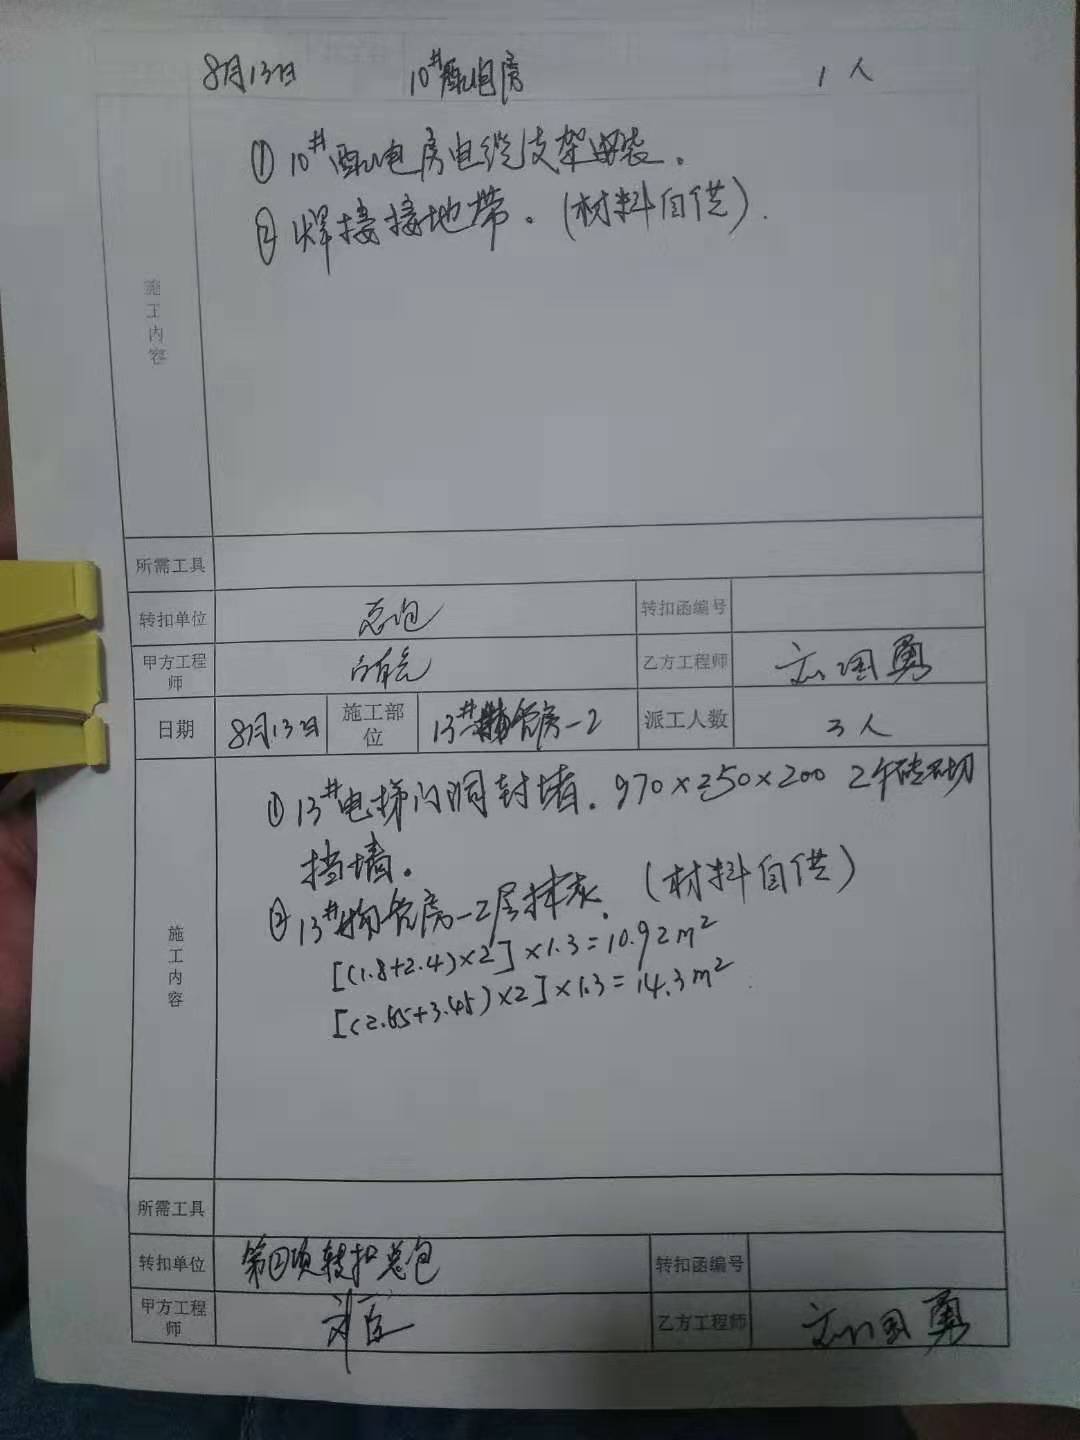 8月13日 10#配电房 1人
①10#配电房电缆支架安装.
②焊接接地带。(材料自供).
施工内容
所需工具
转扣单位 总包 转扣函编号
甲方工程师 乙方工程师
日期 8月13日 施工部位 13#物管房-2 派工人数 3人
①13#电梯门洞封堵. 970×250×200 2个砖砌
挡墙。
②13#物管房-2层抹灰. (材料自供)
[(1.8+2.4)×2]×1.3=10.92m²
[(2.65+3.45)×2]×1.3=14.3m²
施工内容
所需工具
转扣单位 第②项转扣总包 转扣函编号
甲方工程师 乙方工程师